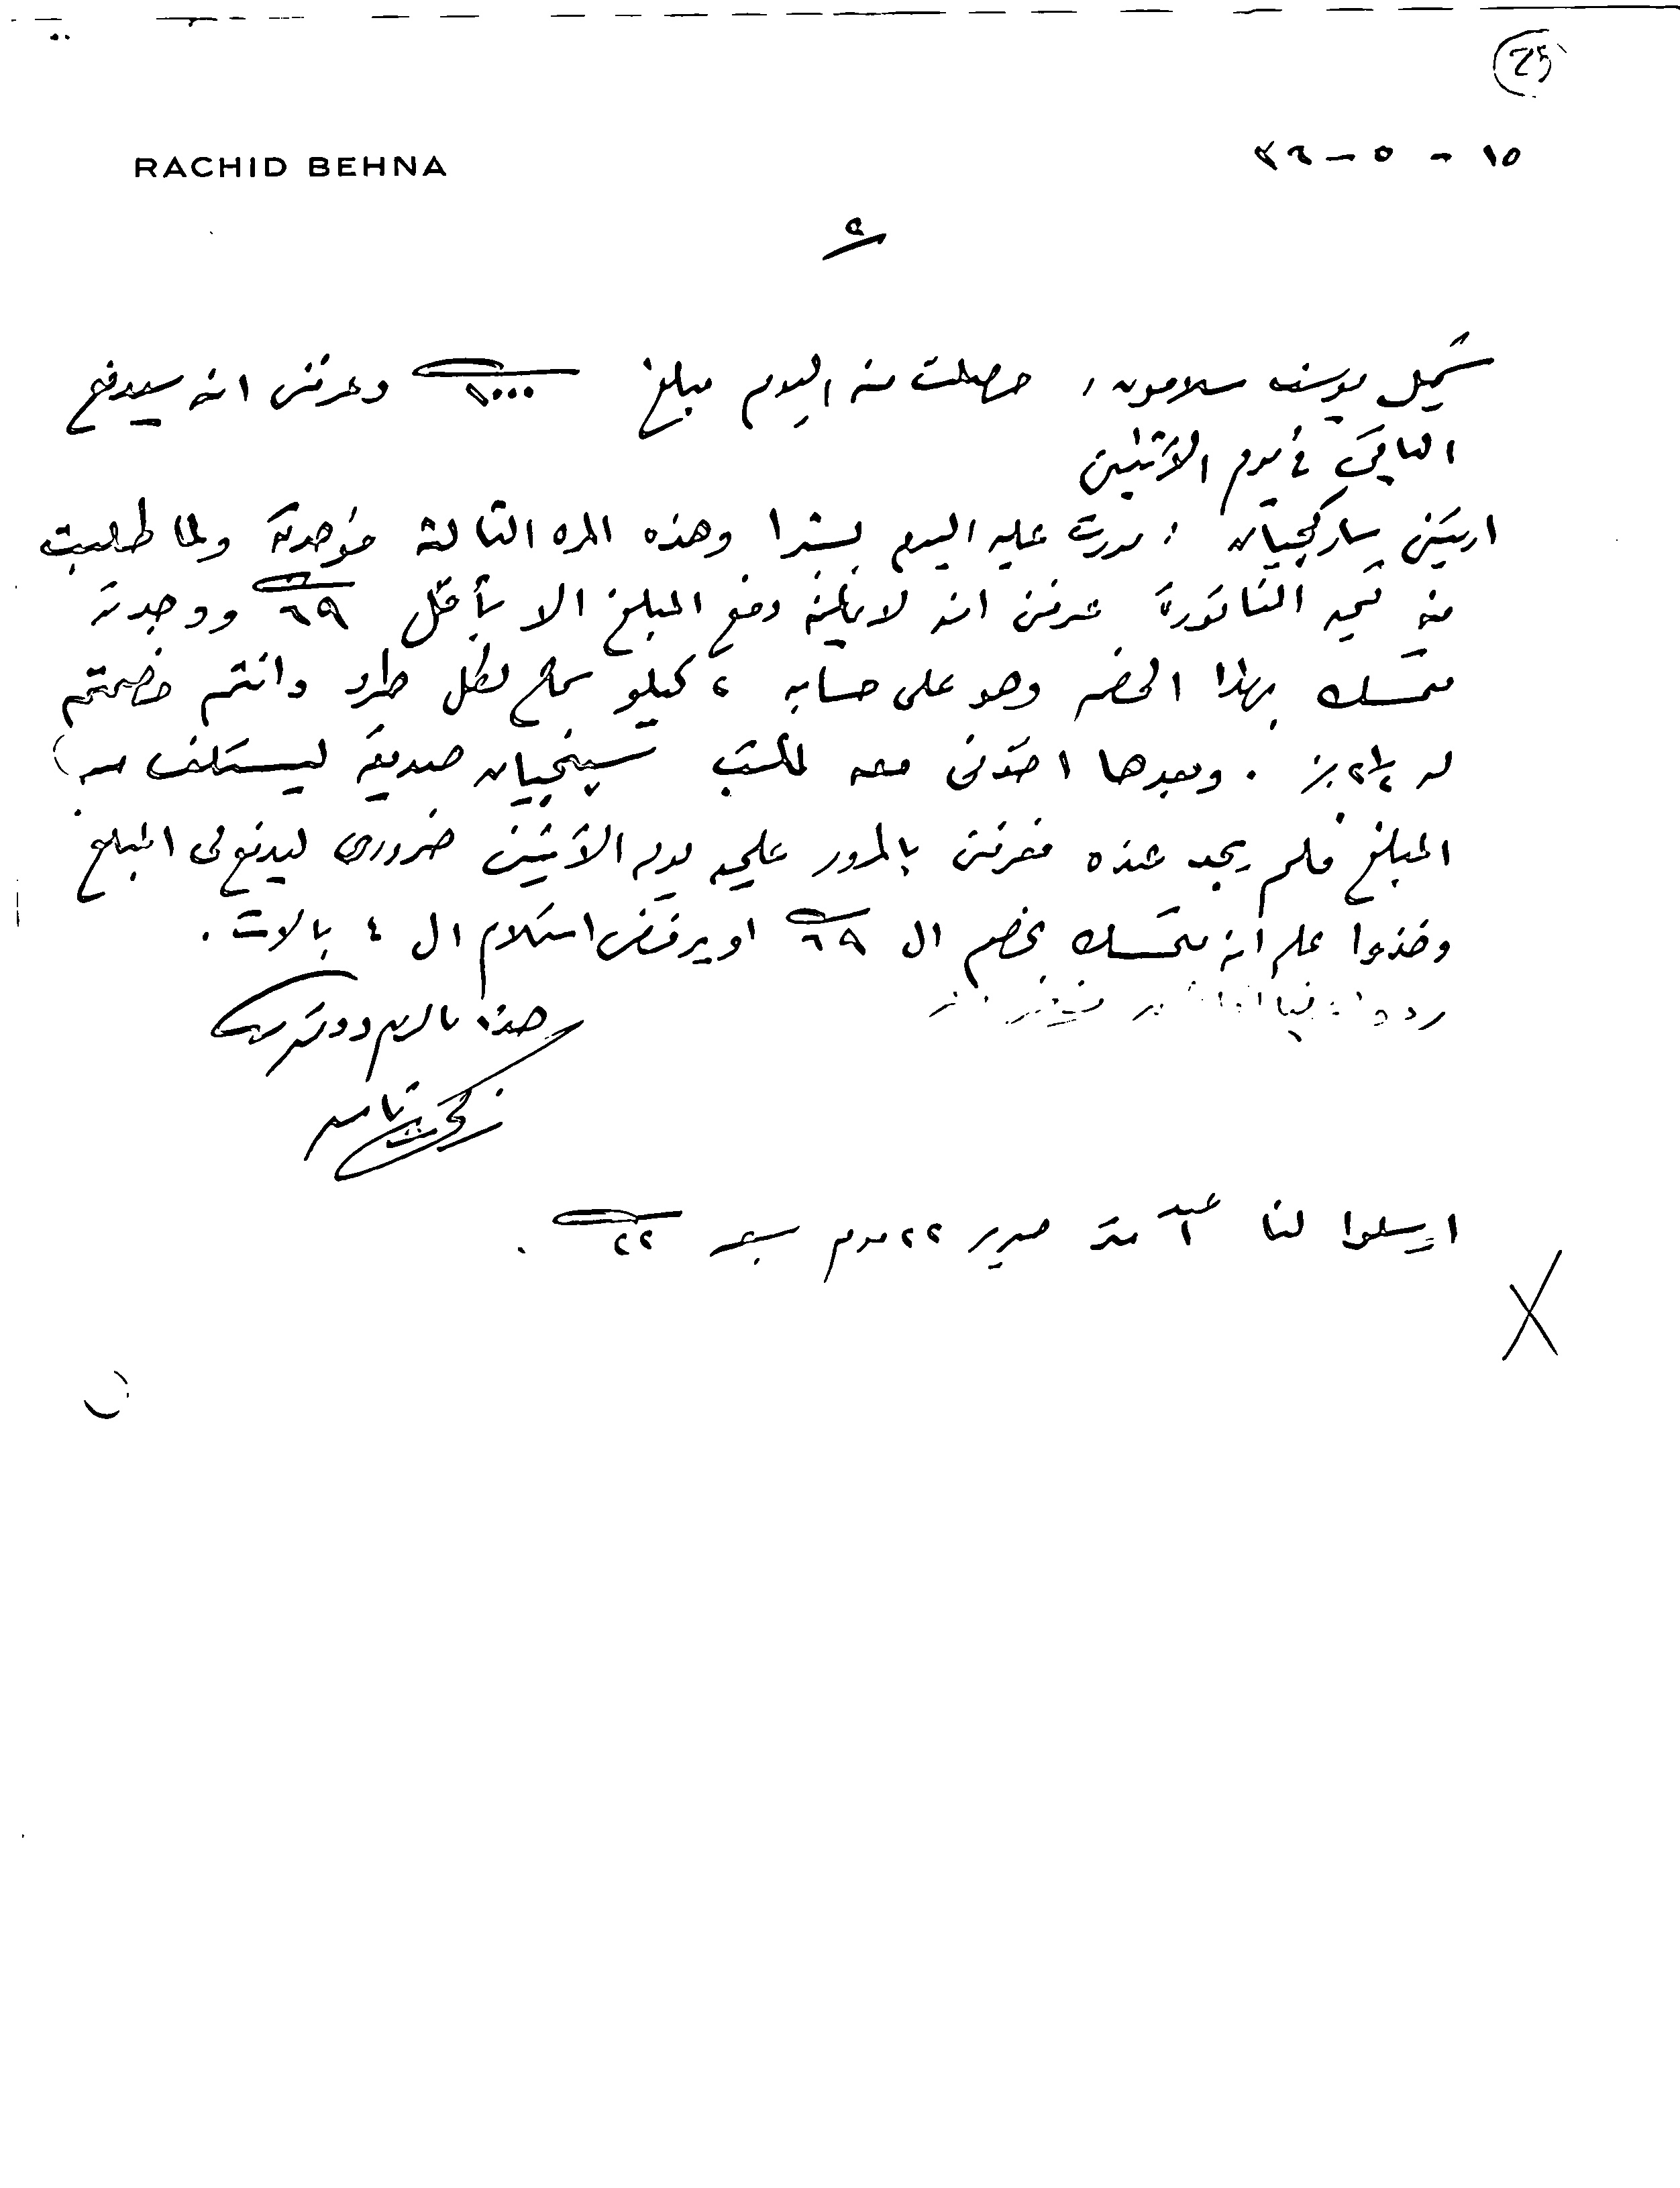 25
RACHID BEHNA
١٥ - ٥ - ٣٦
شميل يوسف سلامون : حصلت منه اليوم مبلغ ١٠٠٠٠ وعرفنى انه سيدفع
الباقى فى يوم الاثنين
ارتين ساركجيان : مررت عليه اليوم بشبرا وهذه المره الثالثه فوجدته ولما طلبت
منه الفاتورة عرفنى انه لا يمكنه دفع المبلغ الا بأقل ٦٩ ووجدته
متمسك بهذا الخصم وهو على حسابه ٢ كيلو سماح لكل طرد وانتم خصمتم
له ٢ ١/٢ ٪ . وبعدها اخذنى معه لمكتب صديقه ليستلف منه
المبلغ فلم يجد عنده فعرفنى بالمرور عليه يوم الاثنين ضرورى ليدفع لى المبلغ
وخذوا علم انه متمسك بخصم ال ٦٩ او يرفض استلام ال ٤ بالات .
هذا مالزم ودمتم
ارسلوا لنا متر حرير ٢٢ بسعر ٢٢ .